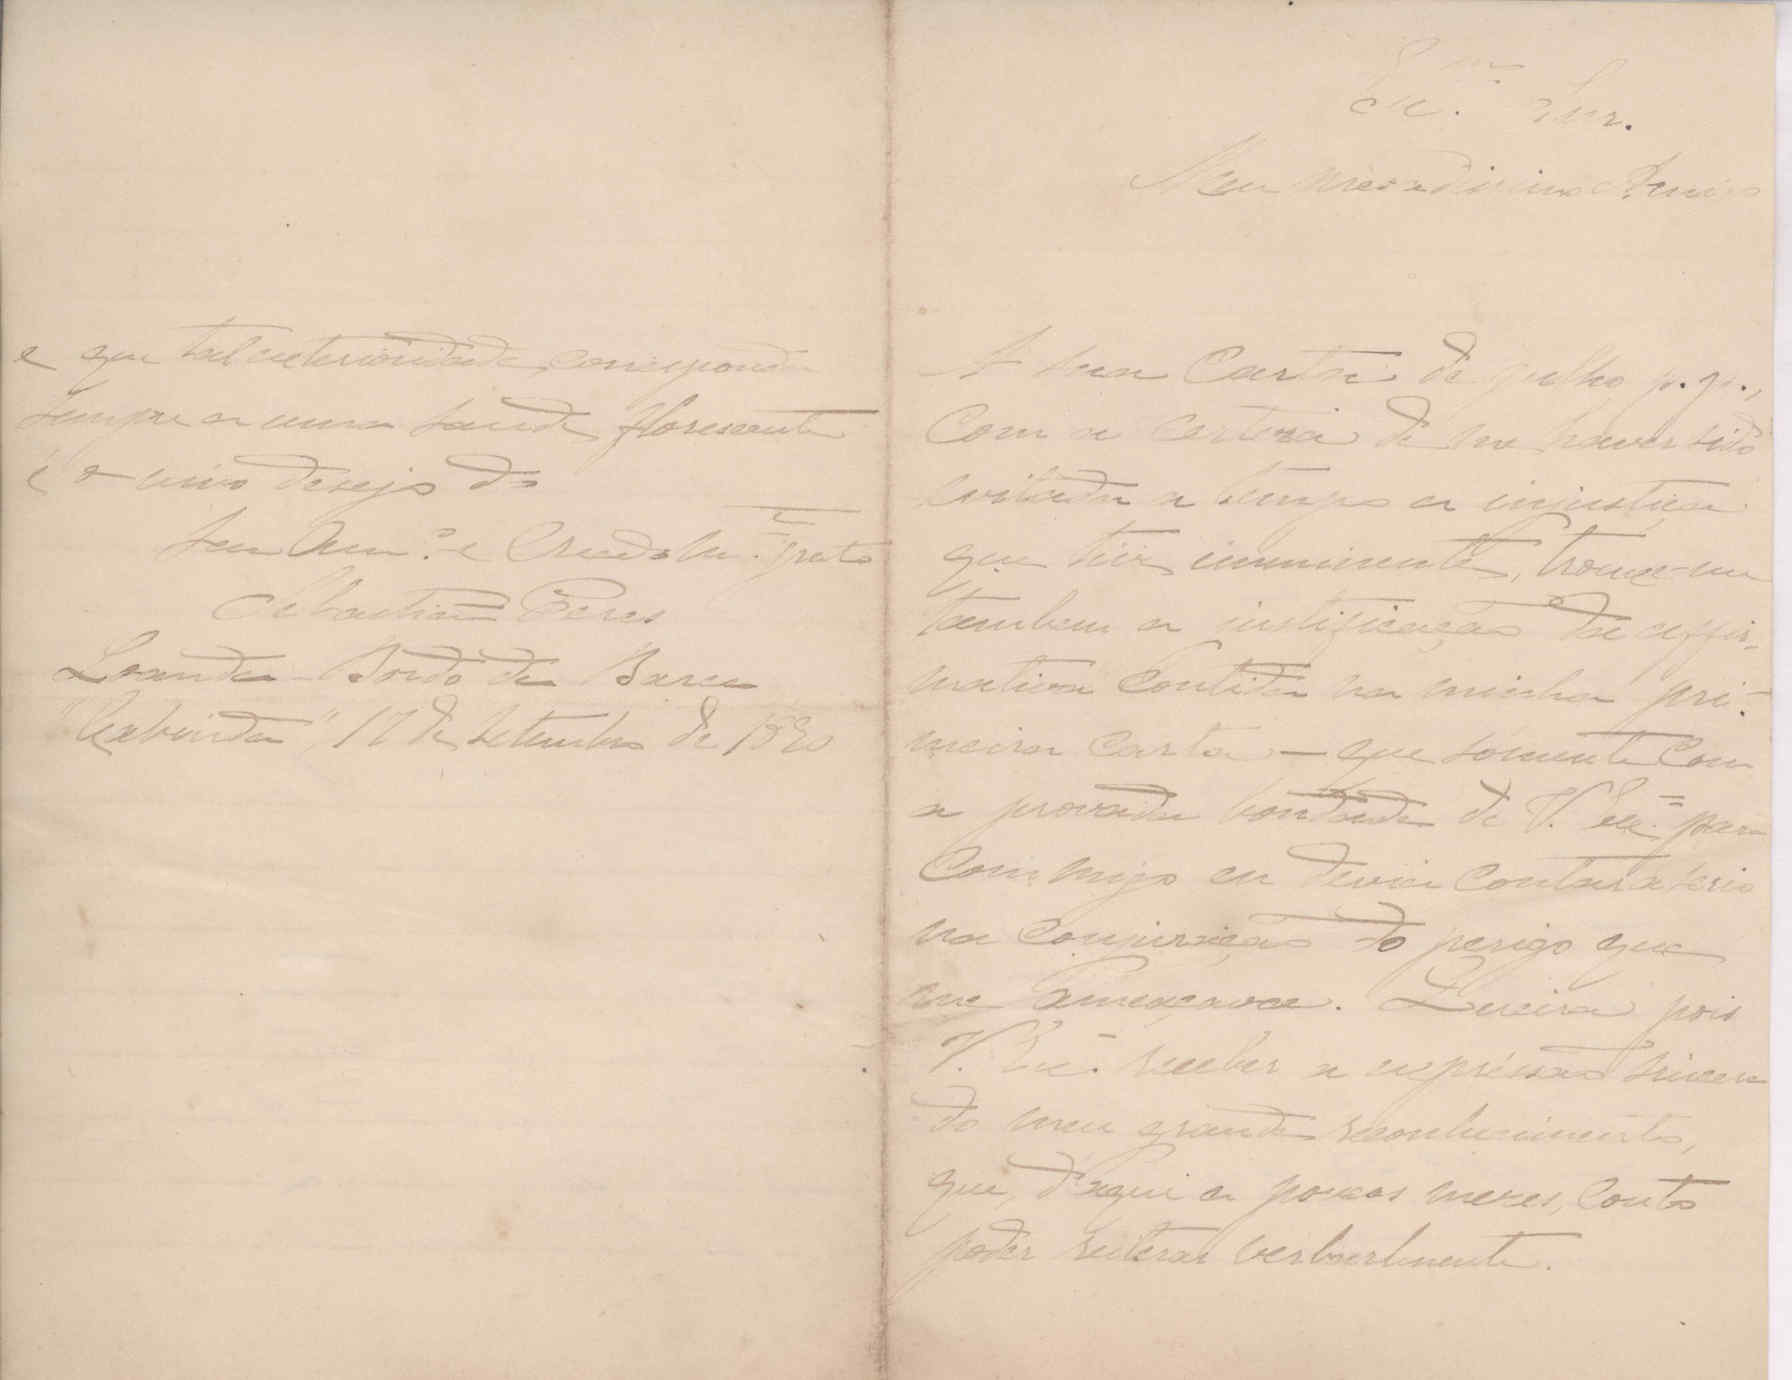 Exmo. Snr.
Meu presadissimo Amigo
A sua Carta de julho p. p.,
Com a certeza de me haver sido
evitada a tempo a injustiça
que tive imminente, trouxe-me
tambem a justificação da affir-
mativa Contida na minha pri-
meira carta — que sómente Com
a provada bondade de V. Exª para
Commigo eu devia Contar a serio
na conjuração do perigo que
me ameaçava. Queira pois
V. Exª receber a expressão sincera
do meu grande reconhecimento,
que, d'aqui a poucos mezes, Conto
poder reiterar verbalmente.
e que tal exterioridade, corresponda
sempre a uma saude florescente
é o vivo desejo do
seu Amº e Creado mtº grato
Sebastião Peres
Loanda - Bordo da Barca
"Cabinda", 17 de Setembro de 1890